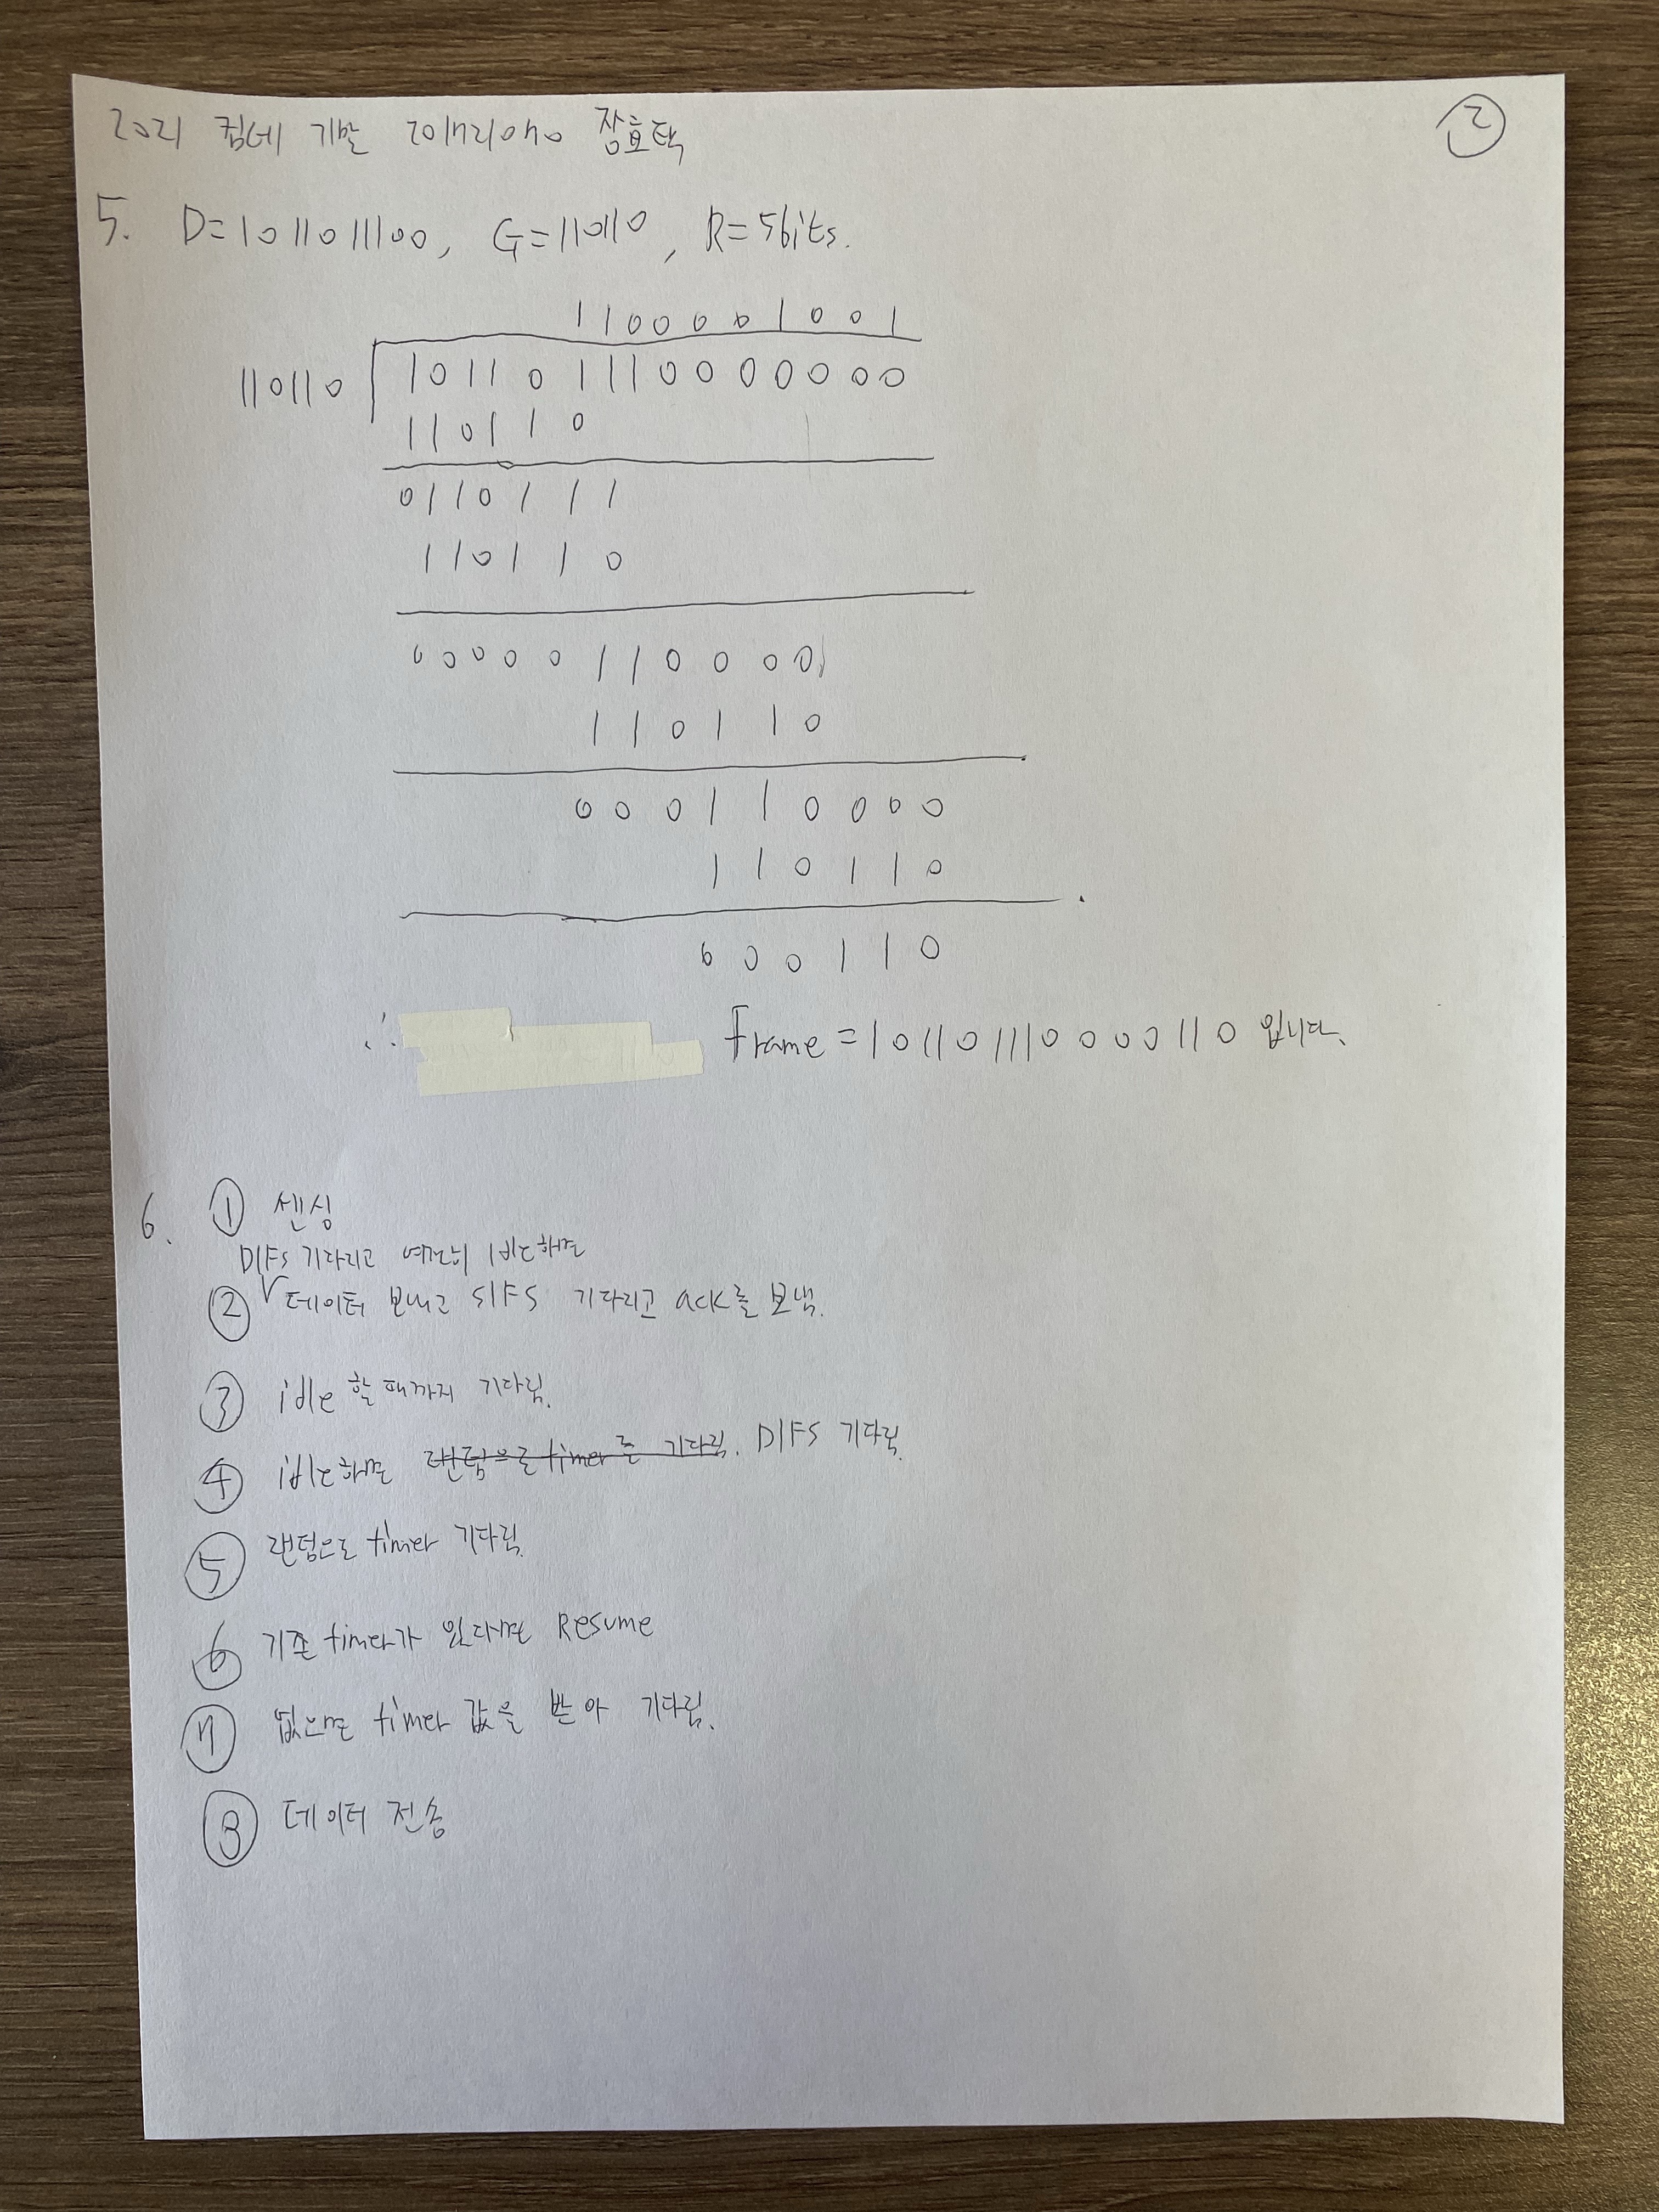 2021 컴네 기말 201721070 장효택
②
5. D=1011011100, G=110110, R=5bits.
1100001001
110110 101101110000000
110110
0110111
110110
00000110000
110110
000110000
110110
000110
∴ frame = 101101110000110 입니다.
6. ① 센싱
DIFS 기다리고 여전히 idle하면
② 데이터 보내고 SIFS 기다리고 ack를 보냄.
③ idle 할때까지 기다림.
④ idle하면 랜덤으로 timer를 기다림. DIFS 기다림.
⑤ 랜덤으로 timer 기다림.
⑥ 기존 timer가 있다면 Resume
⑦ 없으면 timer 값을 받아 기다림.
⑧ 데이터 전송